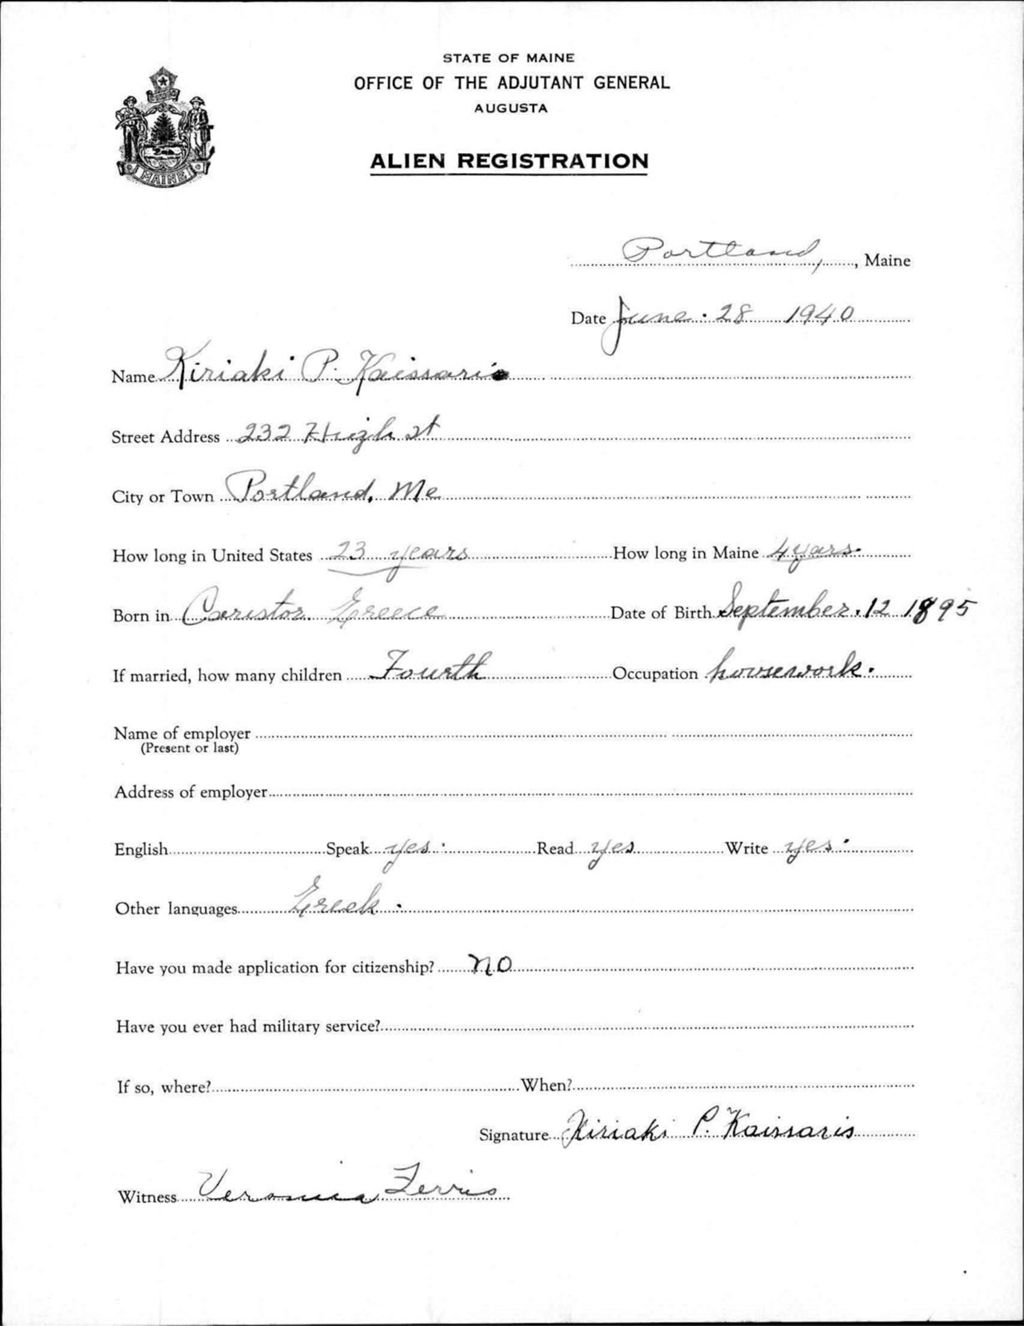 STATE OF MAINE
OFFICE OF THE ADJUTANT GENERAL
AUGUSTA
ALIEN REGISTRATION
MAINE
Portland, , Maine
Date June. 28 1940
Name Kiriaki P. Kaissaris
Street Address 232 High st
City or Town Portland, Me
How long in United States 23 years How long in Maine 4 years.
Born in Caristos Greece Date of Birth September. 12 1895
If married, how many children Fourth Occupation housework.
Name of employer
(Present or last)
Address of employer
English Speak yes. Read yes Write yes.
Other languages Greek.
Have you made application for citizenship? no
Have you ever had military service?
If so, where? When?
Signature Kiriaki P. Kaissaris
Witness Veronica Ferris